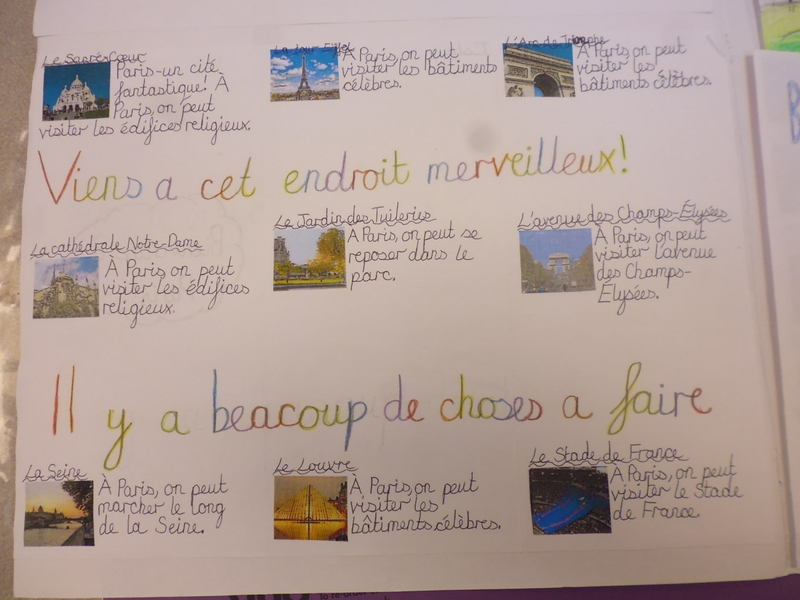 Le Sacré Cœur
Paris-un cité
fantastique! À
Paris, on peut
visiter les édifices religieux.
La Tour Eiffel
À Paris, on peut
visiter les bâtiments
célèbres.
L'Arc de Triomphe
À Paris, on peut
visiter les
bâtiments célèbres.
Viens a cet endroit merveilleux!
La cathédrale Notre-Dame
À Paris, on peut
visiter les édifices
religieux.
Le Jardin des Tuileries
À Paris, on peut se
reposer dans le
parc.
L'avenue des Champs-Élysées
À Paris, on peut
visiter l'avenue
des Champs-
Élysées.
Il y a beacoup de choses a faire
La Seine
À Paris, on peut
marcher le long
de la Seine.
Le Louvre
À Paris, on peut
visiter les
bâtiments célèbres.
Le Stade de France
À Paris, on peut
visiter le Stade
de France